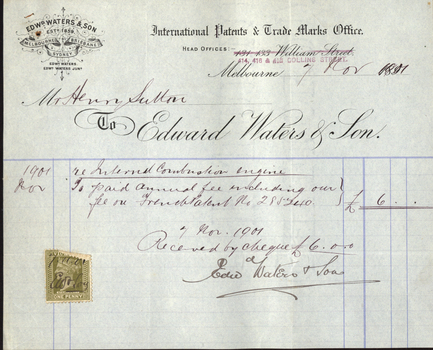 EDWD WATERS & SON
ESTD 1859
MELBOURNE BRISBANE
SYDNEY
EDWD WATERS.
EDWD WATERS JUNR
International Patents & Trade Marks Office.
HEAD OFFICES:- 131-133 William Street,
414, 416 & 418 COLLINS STREET.
Melbourne 7 Nov 1901
Mr Henry Sutton
To Edward Waters & Son.
1901 re Internal Combustion engine
Nov To paid annual fee including our
fee on French Patent No £ 6
7 Nov. 1901
Received by cheque £6.0.0
Edwd Waters & Son
ONE PENNY